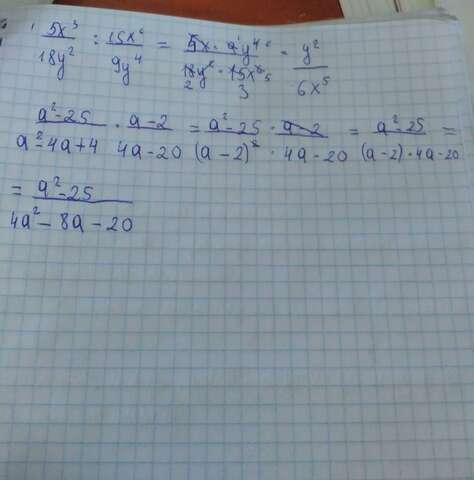 5x³/18y² : 15x⁶/9y⁴ = 5x · 9y⁴/18y² · 15x⁶ = y²/6x⁵
a²-25/a²-4a+4 · a-2/4a-20 = a²-25 · a-2/(a-2)² · 4a-20 = a²-25/(a-2)·4a-20 =
= a²-25/4a²-8a-20